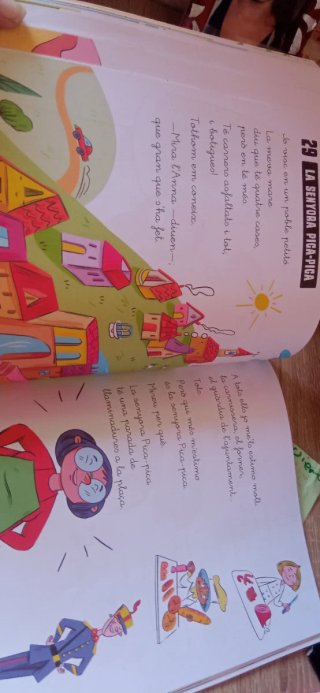 29 LA SENYORA PICA-PICA
Jo visc en un poble petitó.
La meva mare
diu que té quatre cases,
però en té més.
Té carrers asfaltats i tot,
i botigues!
Tothom em coneix.
—Mira l'Anna —diuen—,
que gran que s'ha fet.
A tots ells jo me'ls estimo molt:
la carnissera, el forner,
el guàrdia de l'ajuntament.
Tots.
Però qui més m'estimo
és la senyora Pica-pica.
Mireu per què:
La senyora Pica-pica
té una parada de
llaminadures a la plaça.